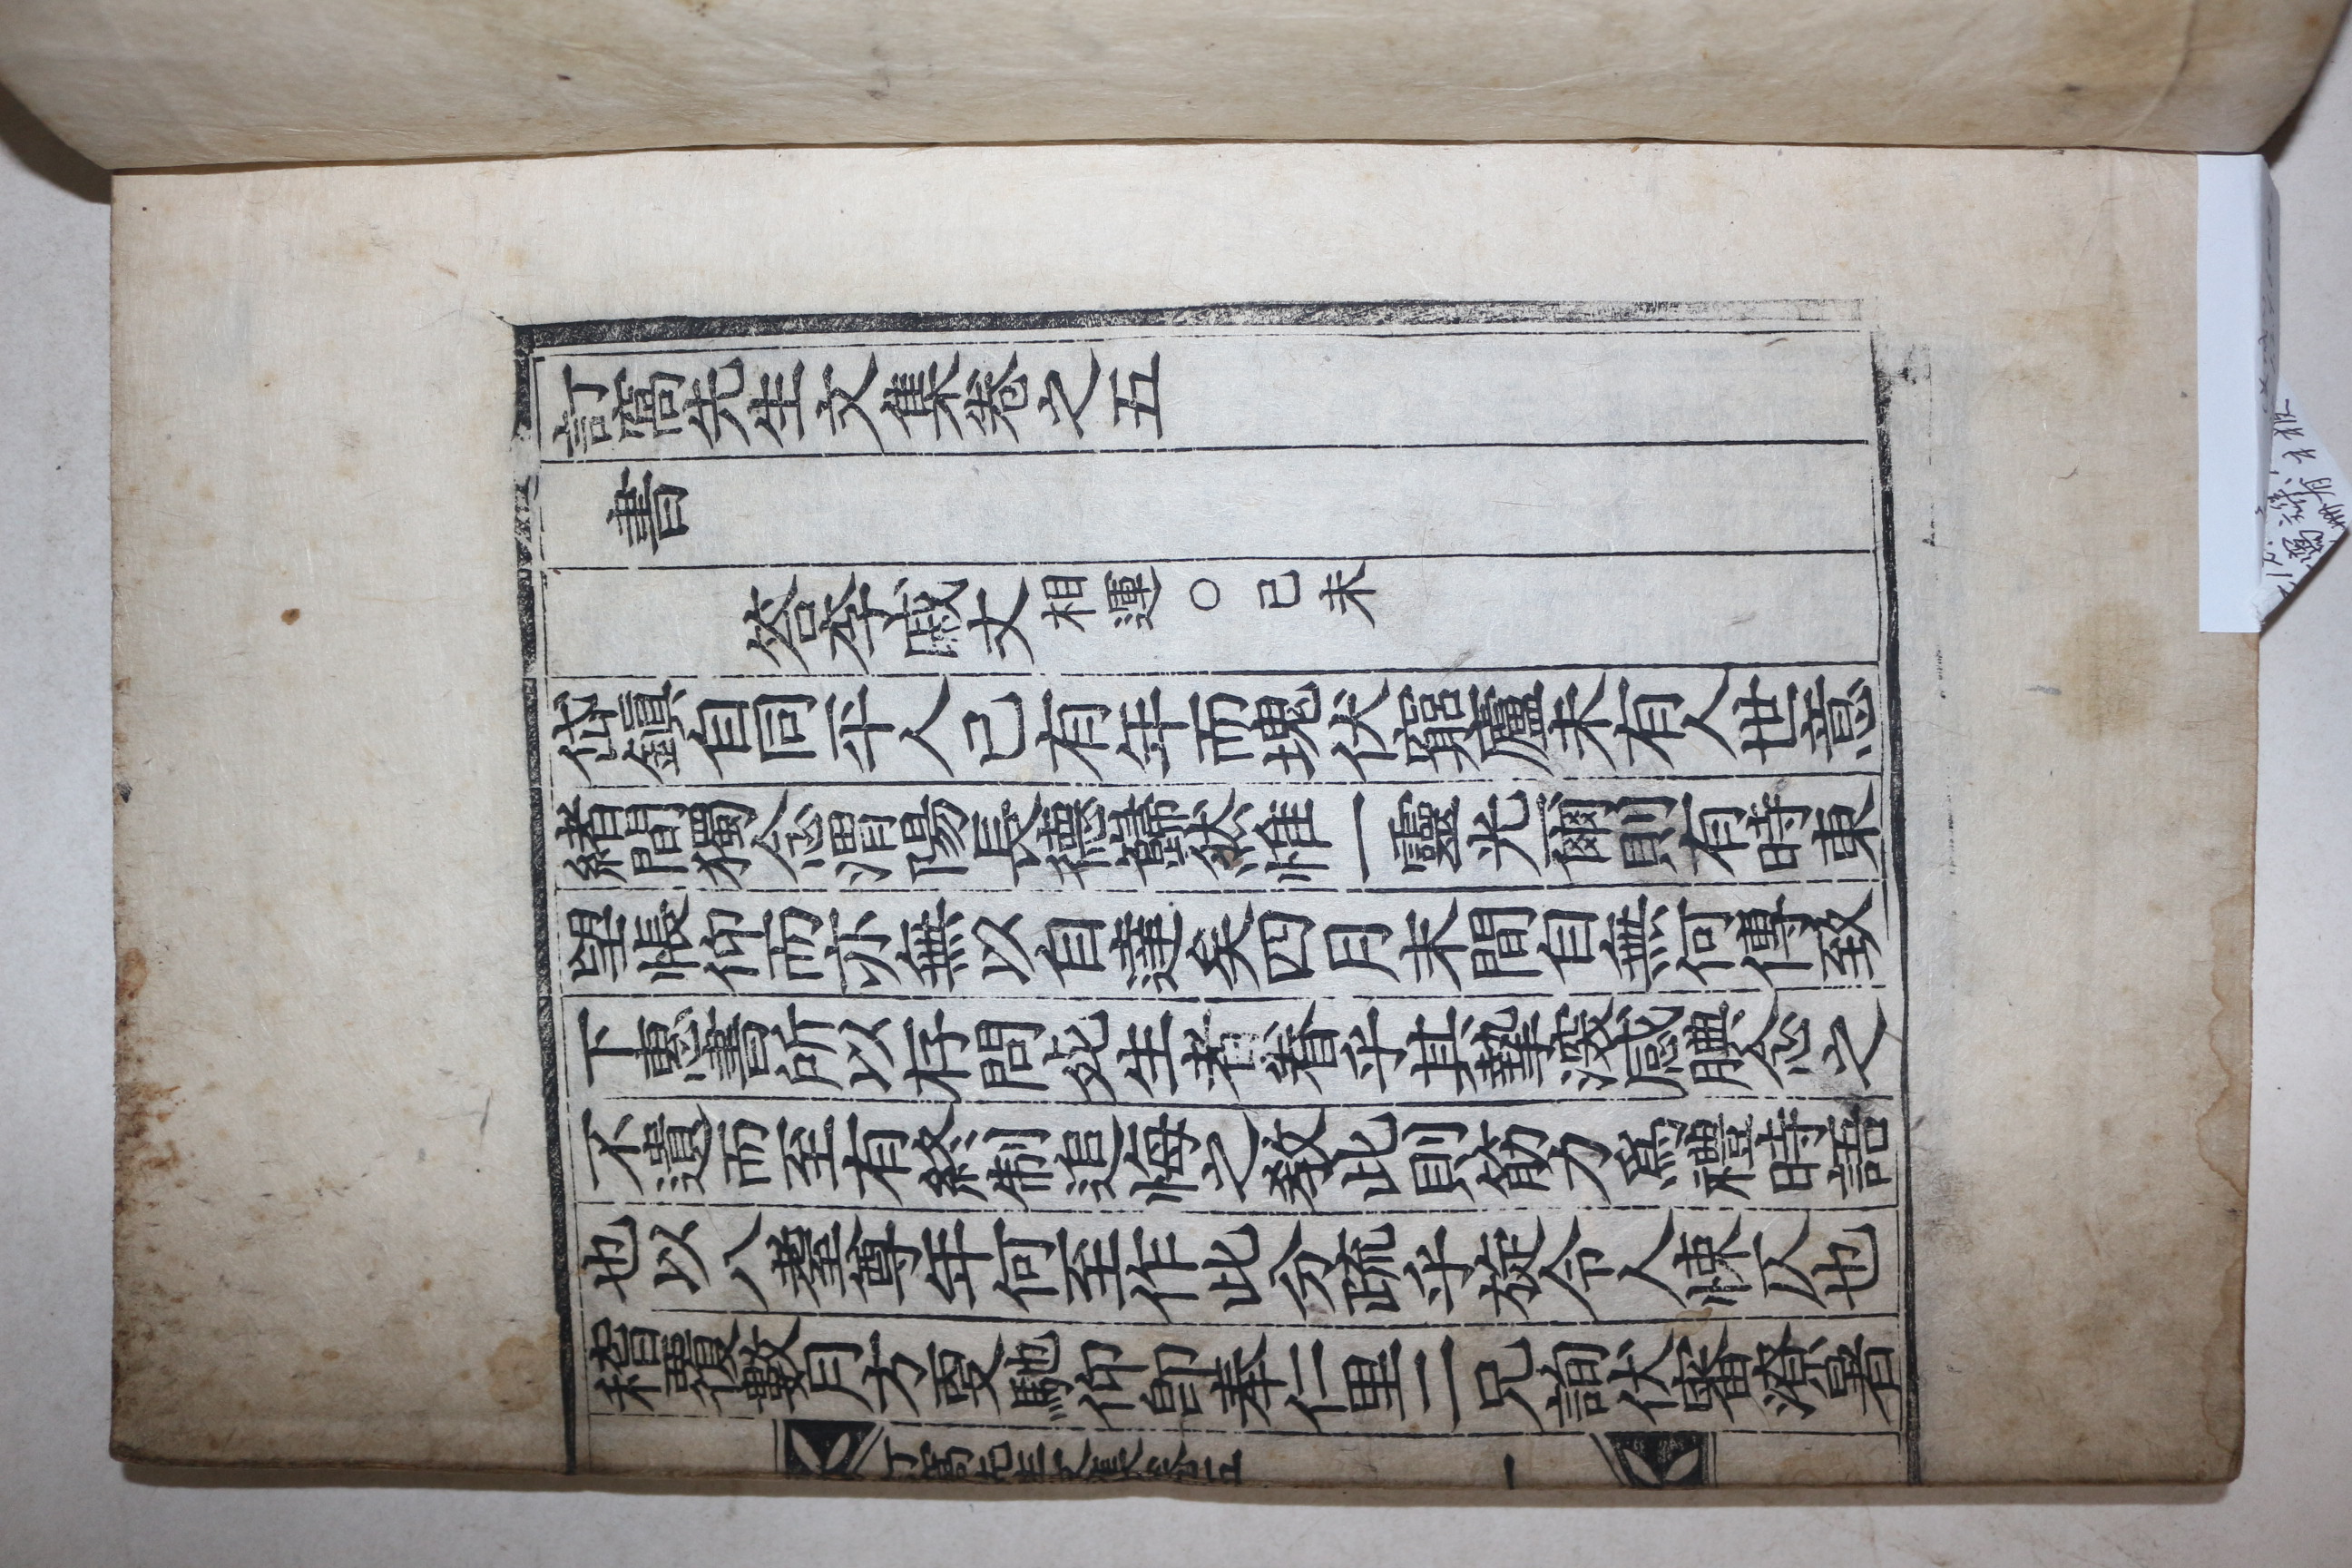 訂窩先生文集卷之五
書
答李戚丈相運○己未
岱鎭自同平人已有年而塊伏窮廬未有人世意
緖間獨念渭陽長德歸然惟一靈光爾則有時東
望悵仰而亦無以自達矣四月末間自無何傳致
下惠書所以存問此生者着乎其摯深感腆念之
不遺而至有終制追悔之敎此則筋力爲禮時語
也以八耋尊年何至作此分疏乎旋令人悚仄也
稽覆數月方更馳仰卽奉仁里二兄詢伏審潦暑
訂窩先生文集卷五 一